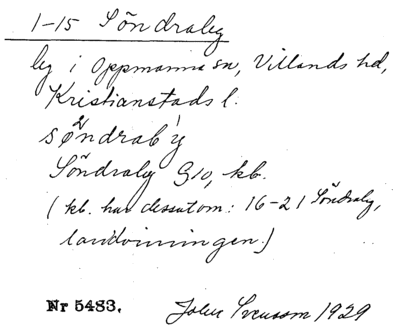 1-15 Söndraby
by i Oppmanna sn, Villands hd,
Kristianstads l.
Söndraby G10, kb.
(kb. har dessutom: 16-21 Söndraby,
landvinningen.)
Nr 5483. John Svensson 1929